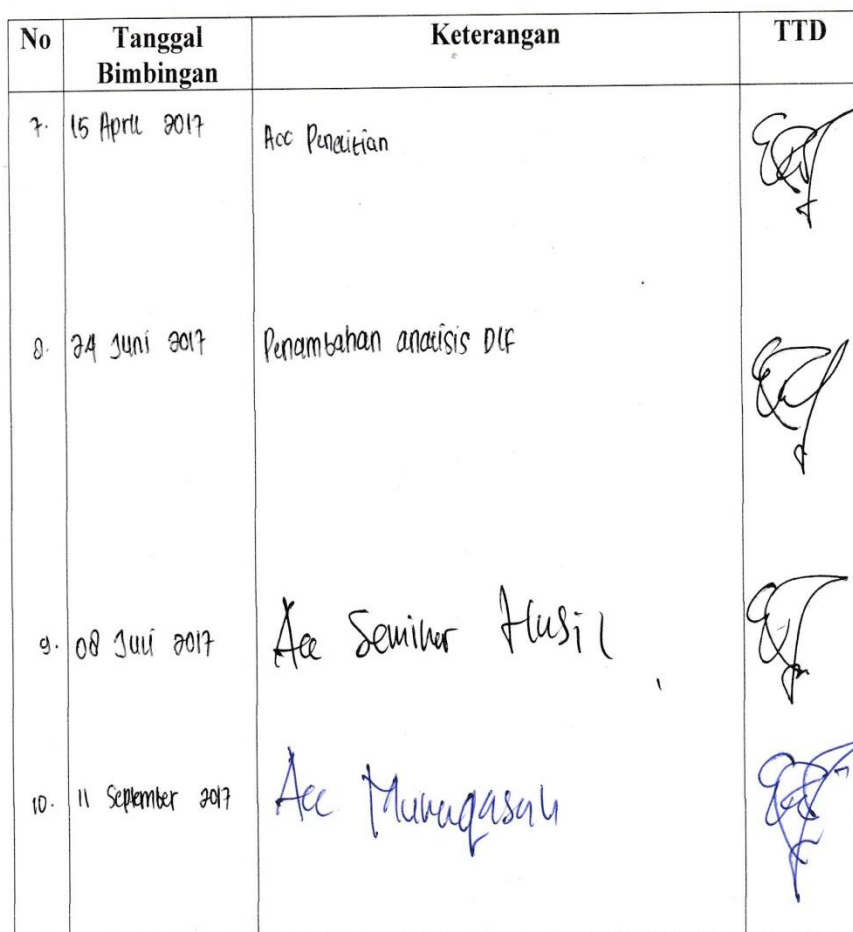 No Tanggal Bimbingan Keterangan TTD
7. 15 April 2017 Acc Penelitian
8. 24 Juni 2017 Penambahan analisis DIF
9. 08 Juli 2017 Acc Seminar Hasil
10. 11 September 2017 Acc Munaqasah